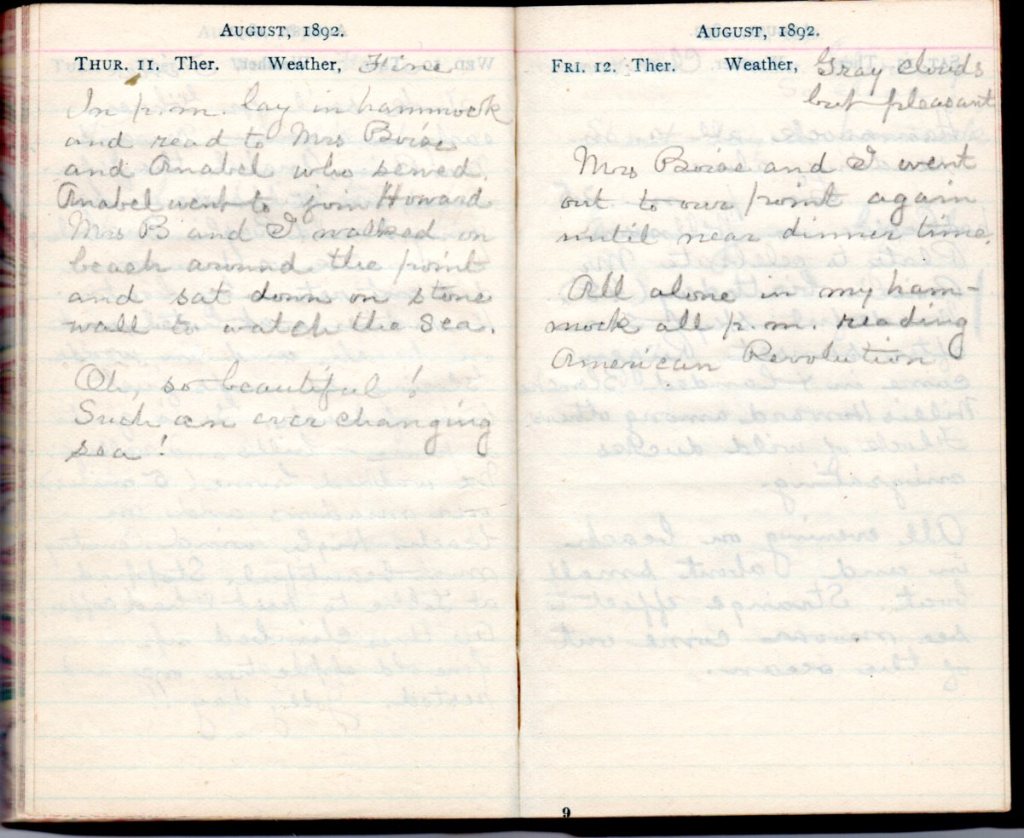 August, 1892.
Thur. 11. Ther. Weather, Fine
In p.m. lay in hammock
and read to Mrs Boise
and Anabel who sewed.
Anabel went to join Howard
Mrs B and I walked on
beach around the point
and sat down on stone
wall to watch the sea.
Oh, so beautiful!
Such an ever changing
sea!
August, 1892.
Fri. 12. Ther. Weather, Gray clouds
but pleasant
Mrs Boise and I went
out to our point again
until near dinner time.
All alone in my ham-
mock all p.m. reading
American Revolution
9